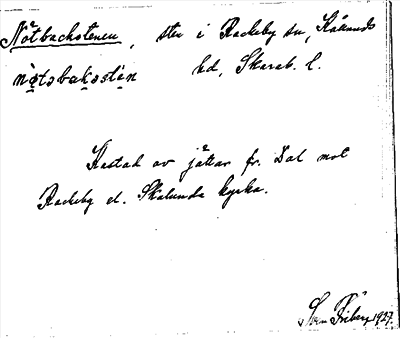 Nötbacksstenen, sten i Rackeby sn, Kållands
hd, Skarab. l.
Kastad av jättar fr. Dal mot
Rackeby el. Skalunda kyrka.
Sven Friberg 1927.